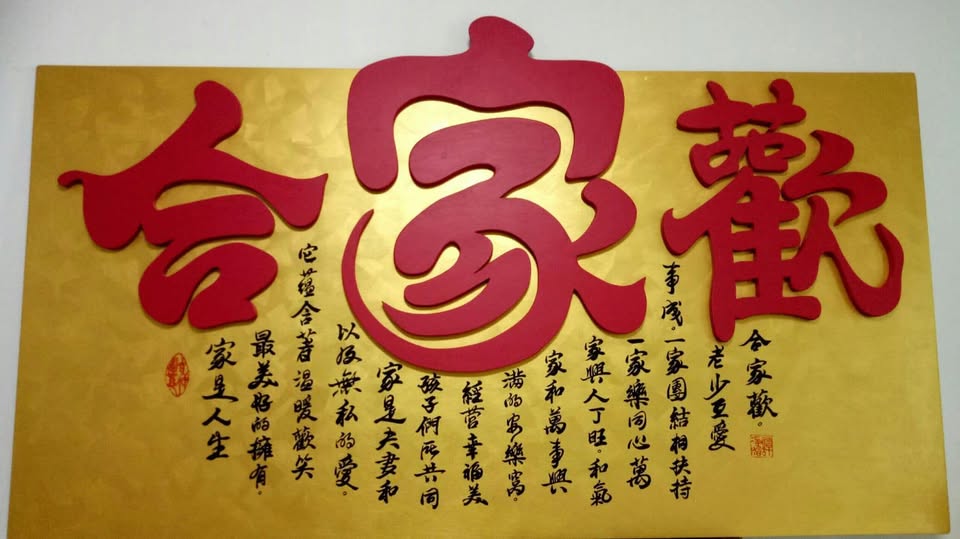 合家歡
家是人生
最美好的擁有。
它蘊含著溫暖歡笑
以及無私的愛。
家是夫妻和
孩子們所共同
經營幸福美
滿的安樂窩。
家和萬事興
家興人丁旺。和氣
一家樂同心萬
事成。一家團結相扶持
老少互愛
合家歡。